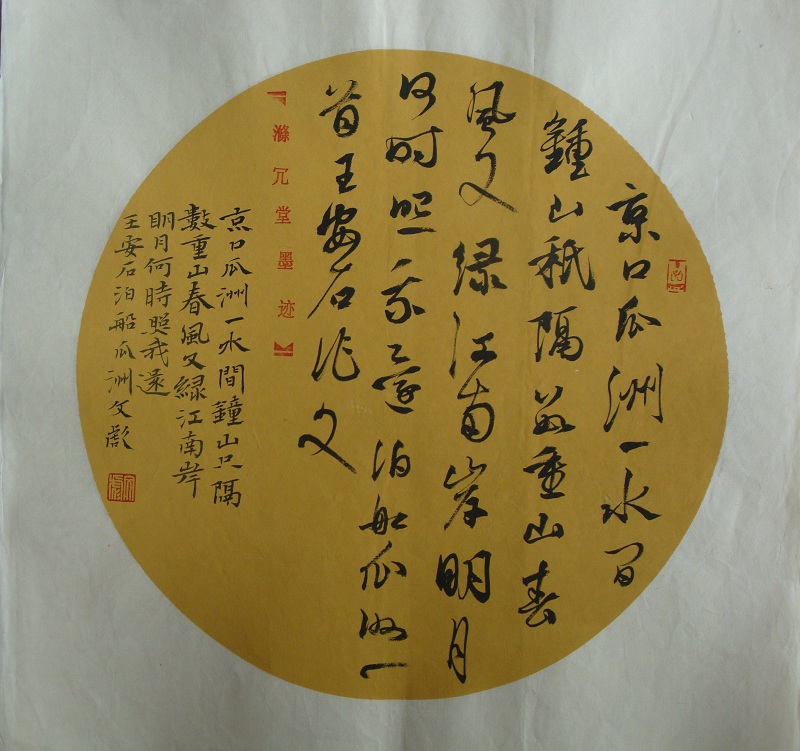 京口瓜洲一水間
鍾山秖隔數重山春
風又绿江南岸明月
何时照我還泊船瓜洲一
首王安石作文
滌冗堂墨迹
京口瓜洲一水間鐘山只隔
數重山春風又綠江南岸
明月何時照我還
王安石泊船瓜洲文